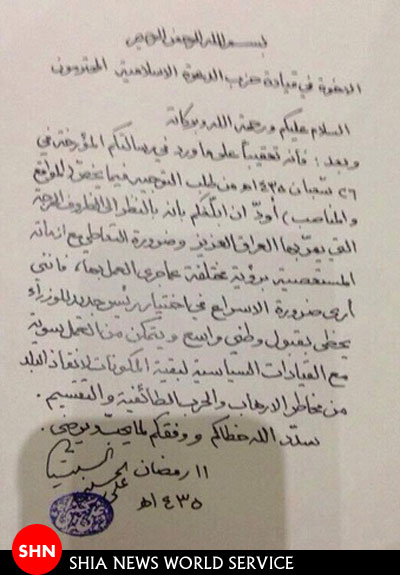 بسم الله الرحمن الرحيم
الاخوة في قيادة حزب الدعوة الاسلامية المحترمون
السلام عليكم ورحمة الله وبركاته
وبعد : فأنه تعقيباً على ما ورد في رسالتكم المؤرخة في
٢٦ شعبان ١٤٣٥هـ من طلب التوجيه فيما يخص (المواقع
والمناصب) أودّ ان ابلّغكم بانه بالنظر الى الظروف الحرجة
التي يمر بها العراق العزيز وضرورة التعاطي مع ازماته
المستعصية برؤية مختلفة عما جرى العمل بها، فانني
أرى ضرورة الاسراع في اختيار رئيس جديد للوزراء
يحظى بقبول وطني واسع ويتمكن من العمل سوية
مع القيادات السياسية لبقية المكونات لانقاذ البلد
من مخاطر الارهاب والحرب الطائفية والتقسيم .
سدّد الله خطاكم ووفقكم لما يحب ويرضى .
١١ رمضان
١٤٣٥هـ
علي الحسيني السيستاني
SHN SHIA NEWS WORLD SERVICE